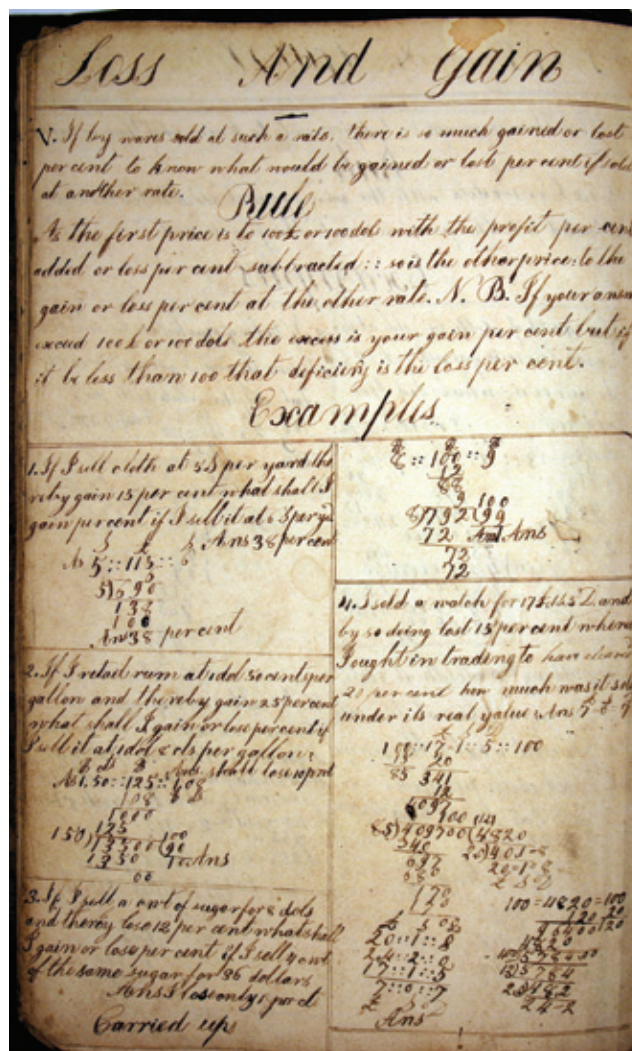 Loss And Gain
V. If by wares sold at such a rate. there is so much gained or lost
per cent to know what would be gained or lost per cent if sold
at another rate.
Rule
As the first price is to 100£ or 100 dols with the profit per cent
added or loss per cent subtracted :: so is the other price : to the
gain or loss per cent at the other rate. N. B. If your answ
exceed 100£ or 100 dols the excess is your gain per cent but if
it be less than 100 that deficiency is the loss per cent.
Examples
1. If I sell cloth at 5S per yard the
reby gain 15 per cent what shall I
gain per cent if I sell it at 6 S per yd
Ans 38 per cent
As 5 :: 115 :: 6
6
5)690
138
100
Ans 38 per cent
2. If I retail rum at 1dol 50 cents per
gallon and thereby gain 25 per cent
what shall I gain or lose per cent if
I sell it at 1dol 8 cts per gallon?
Ans. shall lose 10 pr ct
As 1.50 :: 125 :: 1.08
108
1000
125
150)13500(90
1350
10 Ans
00
3. If I sell a cwt of sugar for 8 dols
and thereby lose 12 per cent what shall
I gain or lose per cent if I sell 4 cwt
of the same sugar for 36 dollars
Ans I lose only 1 pr ct
Carried up
8 :: 100 :: 9
12
88
9
100
8)792(99
72
Ans
72
72
4. I sold a watch for 17£. 1s. 5 D. and
by so doing lost 15 per cent whereas
I ought in trading to have cleared
20 per cent how much was it sold
under its real value Ans 7
100 : 17 - 1 - 5 :: 100
15 20
85 341
12
4097
100
85)409700(4820
340
697
680
170
100 = 4820 = 120
20 :: 1 :: 8
24 :: 2 :: 0
17 :: 1 :: 5
7 :: 0 :: 7
Ans